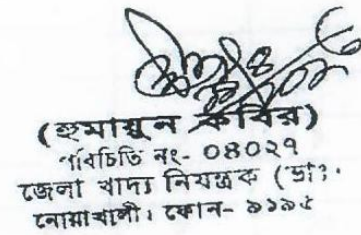 (হুমায়ুন কবির)
পরিচিতি নং- 04027
জেলা খাদ্য নিয়ন্ত্রক (ভাঃ
নোয়াখালী। ফোন- ৯১৯৫